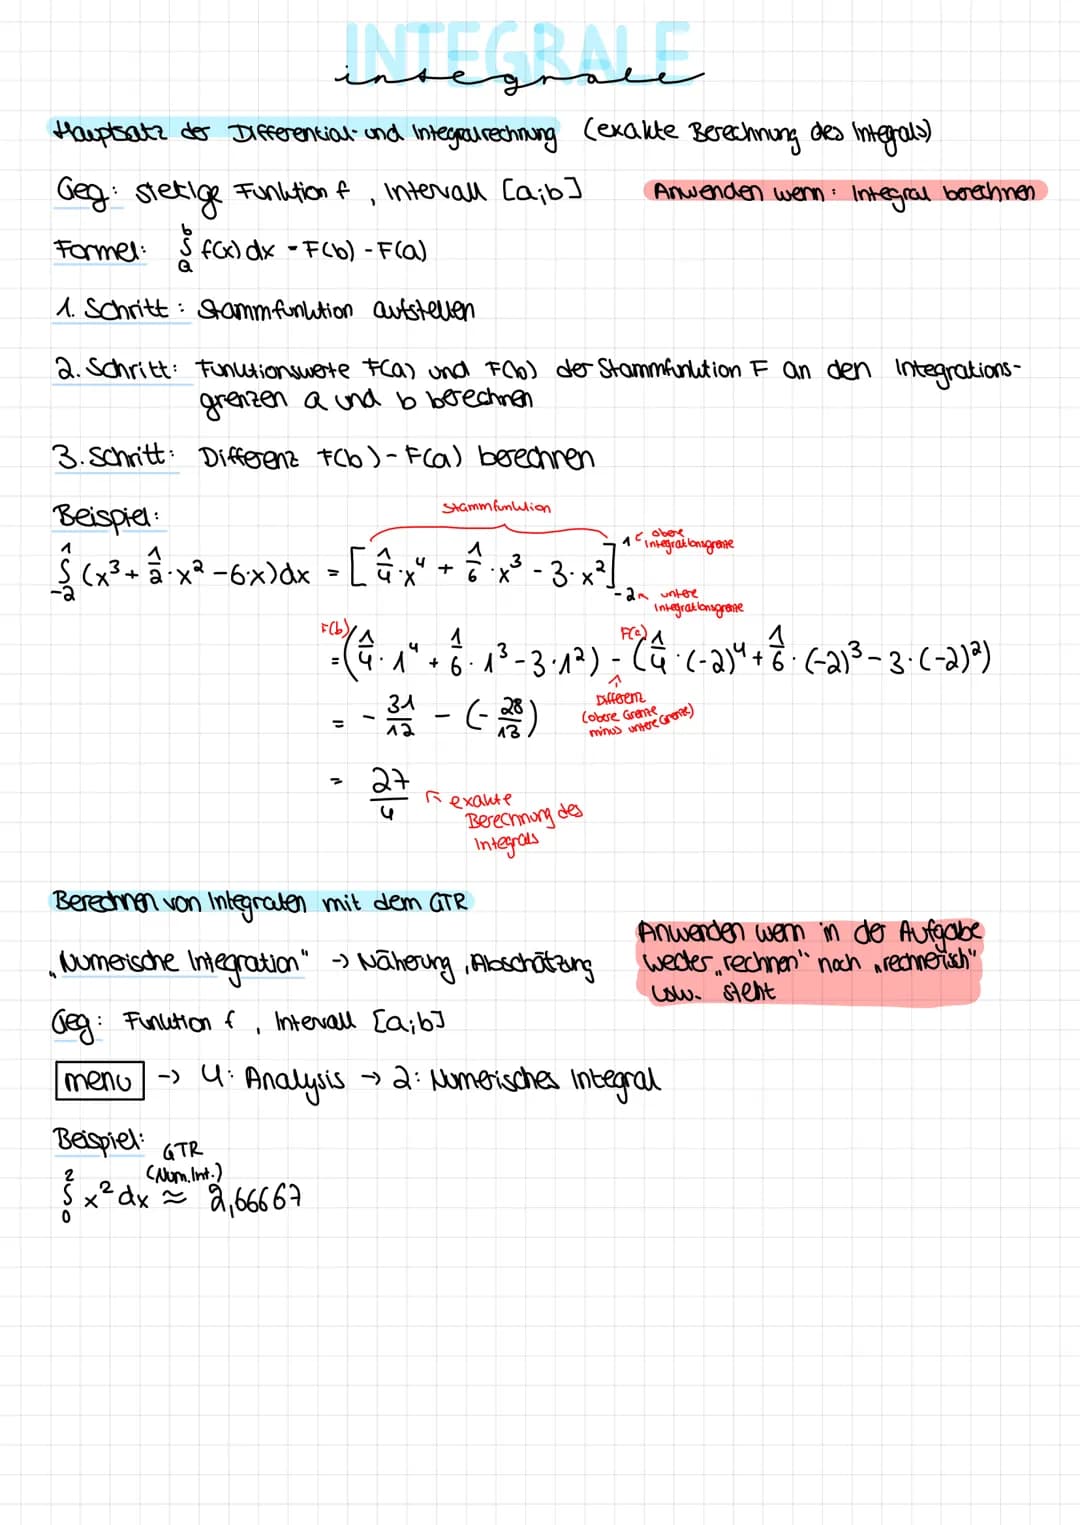 INTEGRALE
integrale
Hauptsatz der Differential- und Integralrechnung (exakte Berechnung des Integrals)
Geg: stetige Funktion f, Intervall [a;b]
Anwenden wenn: Integral berechnen
Formel: ∫ₐᵇ f(x) dx = F(b) - F(a)
1. Schritt: Stammfunktion aufstellen
2. Schritt: Funktionswerte F(a) und F(b) der Stammfunktion F an den Integrations-
grenzen a und b berechnen
3. Schritt: Differenz F(b) - F(a) berechnen
Beispiel:
Stammfunktion
∫₋₂¹ (x³ + 1/2 · x² - 6·x) dx = [1/4 · x⁴ + 1/6 · x³ - 3 · x²]₋₂¹
obere
Integrationsgrenze
untere
Integrationsgrenze
F(b) F(a)
= (1/4 · 1⁴ + 1/6 · 1³ - 3 · 1²) - (1/4 · (-2)⁴ + 1/6 · (-2)³ - 3 · (-2)²)
= - 31/12 - (- 28/13)
Differenz
(obere Grenze
minus untere Grenze)
= 27/4
exakte
Berechnung des
Integrals
Berechnen von Integralen mit dem GTR
"Numerische Integration" → Näherung, Abschätzung
Anwenden wenn in der Aufgabe
weder „rechnen" noch „rechnerisch"
usw. steht
Geg: Funktion f, Intervall [a;b]
menu → 4: Analysis → 2: Numerisches Integral
Beispiel:
GTR
(Num.Int.)
∫₀² x² dx ≈ 2,66667